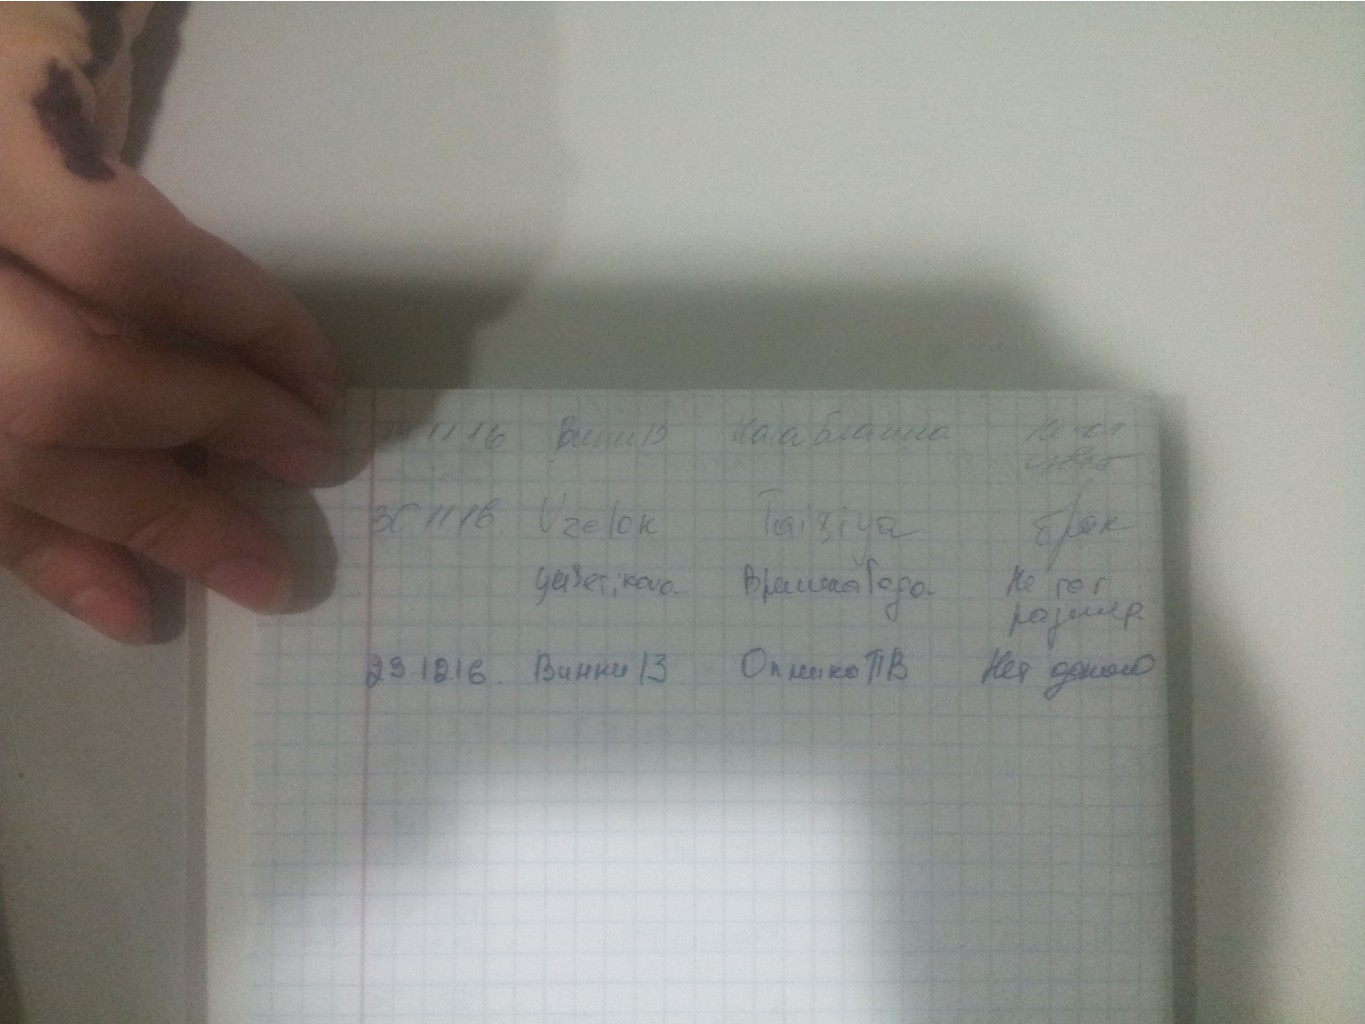 11.16 Винни 13 Касабланка Не тот
30.11.16. Uzelok Taisiya брак
цветік Времена Года Не тот
размер.
23.12.16. Винни 13 Оптика ПВ Нет одного